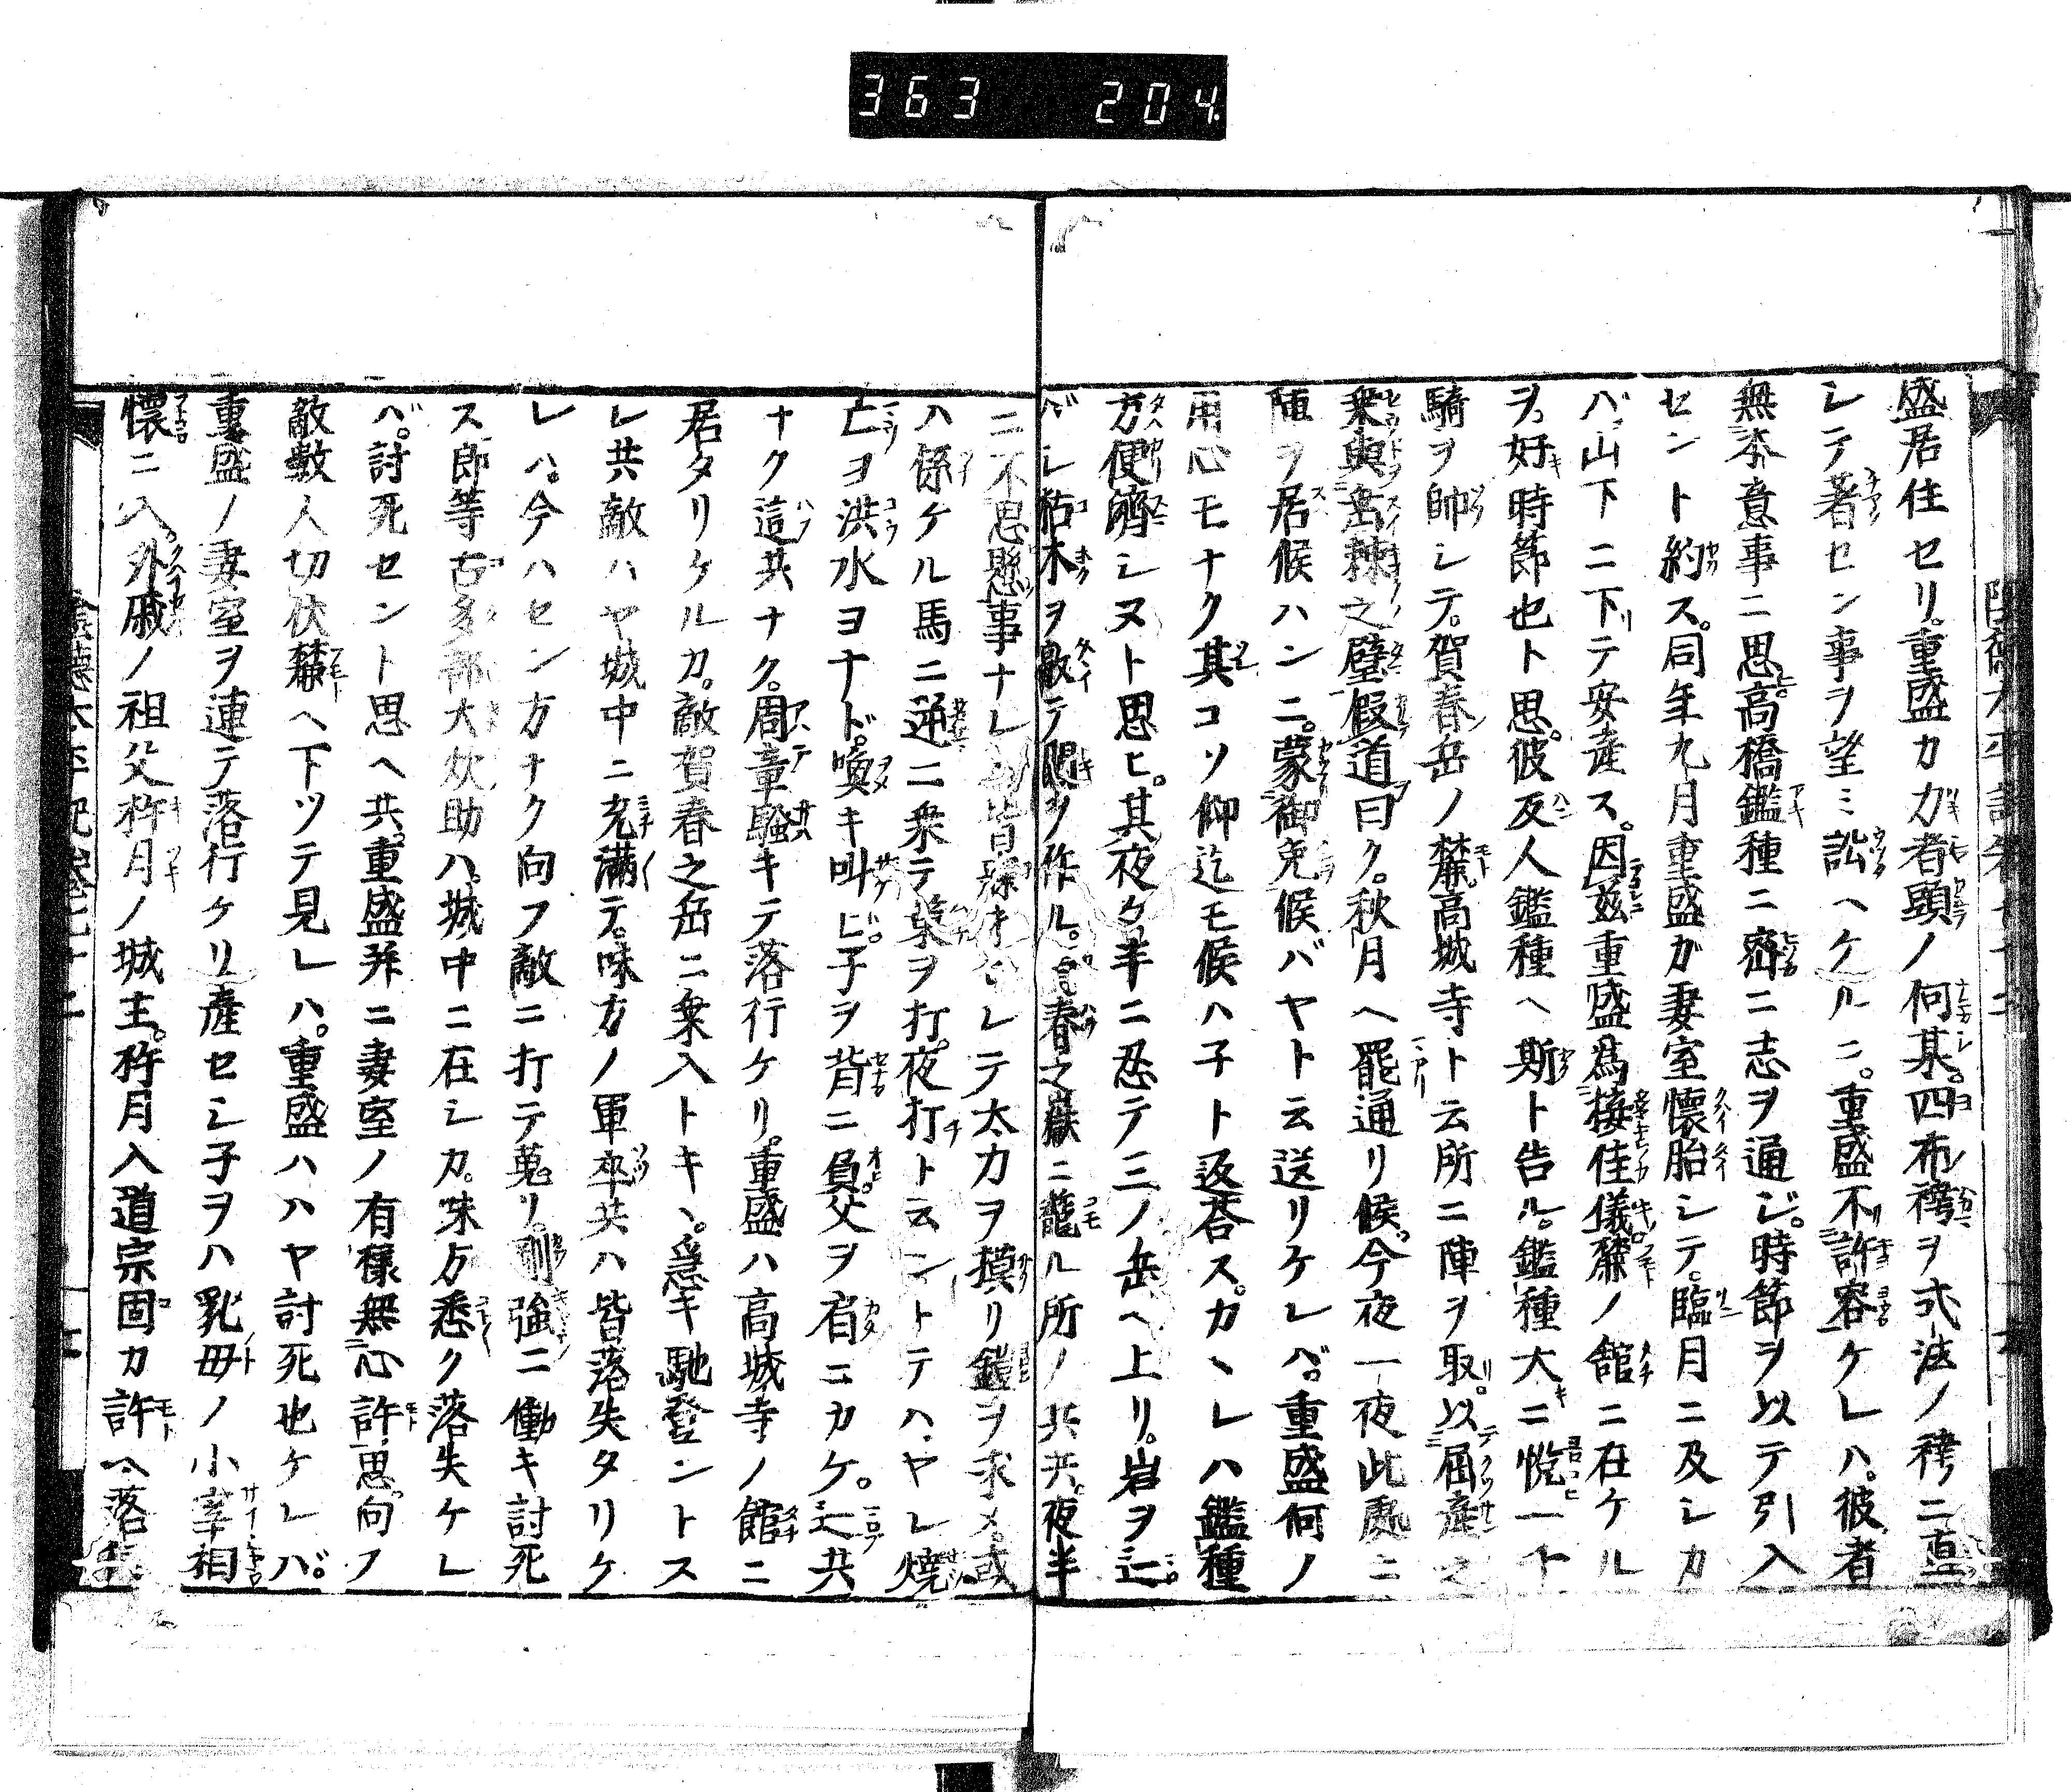 363 204.
盛居住セリ。重盛カ力者頭ノ何某。四布袴ヲ式法ノ袴ニ直
シテ著セン事ヲ望ミ訟ヘケルニ。重盛不許容ケレハ。彼者
無本意事ニ思。高橋鑑種ニ密ニ志ヲ通ジ。時節ヲ以テ引入
セント約ス。同年九月重盛ガ妻室懐胎シテ。臨月ニ及シカ
バ。山下ニ下テ安産ス。因茲重盛為接佳儀。麓ノ館ニ在ケル
ヲ。好時節也ト思。彼反人鑑種ヘ斯ト告ル。鑑種大ニ悦一千
騎ヲ帥シテ。賀春岳ノ麓。高城寺ト云所ニ陣ヲ取。以屈産之
乗與岳棘之璧假道曰ク。秋月ヘ罷通リ候。今夜一夜此處ニ
陣ヲ居候ハンニ。蒙御免候バヤト云送リケレバ。重盛何ノ
用心モナク其コソ仰迄モ候ハ子ト返荅ス。カヽレハ鑑種
方便濟シヌト思ヒ。其夜夕半ニ忍テ三ノ岳ヘ上リ。岩ヲ
バシ枯木ヲ敲テ鬨ヲ作ル。春之嶽ニ籠ル所ノ兵共。夜半
ニ不思懸事ナレ皆レテ太刀ヲ摸リ鎧ヲ求メ。或
ハ係ケル馬ニ逆ニ乗テ策ヲ打。夜打ト云ントテハ。ヤレ焼
亡ヨ洪水ヨナド。喚キ叫ビ。子ヲ背ニ負。父ヲ肩ニカケ。迯共
ナク這共ナク。周章騒キテ落行ケリ。重盛ハ高城寺ノ館ニ
居タリケルカ。敵賀春之岳ニ乗入トキヽ。急キ馳登ントス
レ共敵ハヤ城中ニ充満テ。味方ノ軍卒共ハ皆落失タリケ
レハ。今ハセン方ナク向フ敵ニ打テ蒐リ。剛強ニ働キ討死
ス郎等古多部大炊助ハ。城中ニ在シカ。味方悉ク落失ケレ
バ。討死セント思ヘ共。重盛并ニ妻室ノ有様無心許思。向フ
敵數人切伏麓ヘ下ツテ見レハ。重盛ハハヤ討死也ケレバ。
重盛ノ妻室ヲ連テ落行ケリ産セシ子ヲハ乳母ノ小宰相
懐ニ入。外戚ノ祖父杵月ノ城主。杵月入道宗固カ許ヘ落